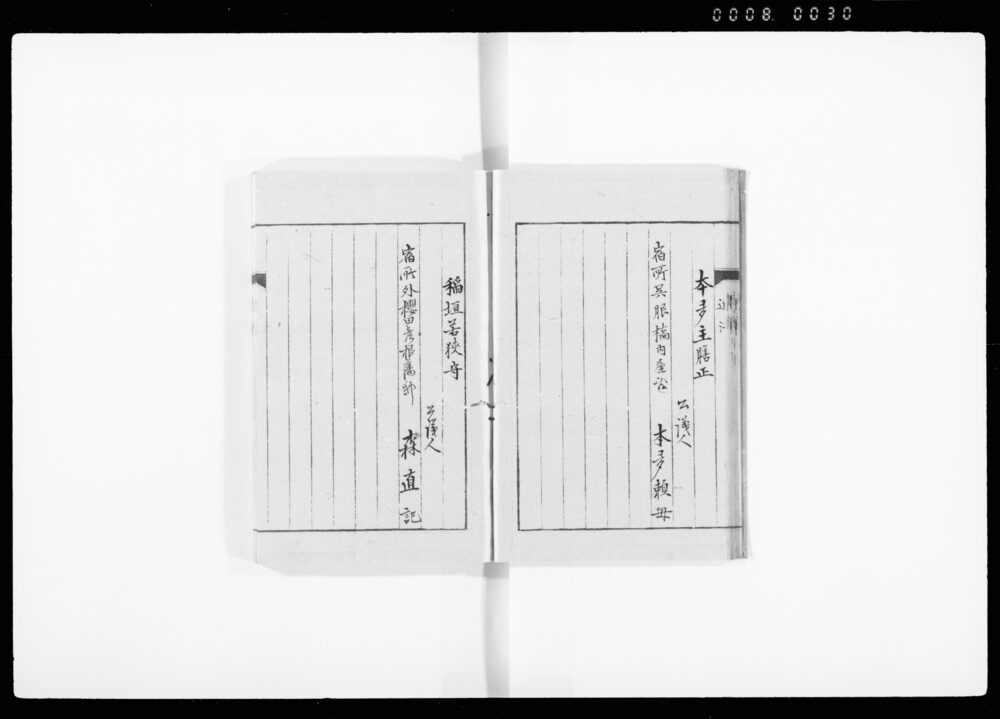 0008 0030
本多主膳正
公議人
宿所呉服橋内屋敷
本多頼母
稲垣若狭守
公議人
宿所外櫻田彦根藩邸
森直記